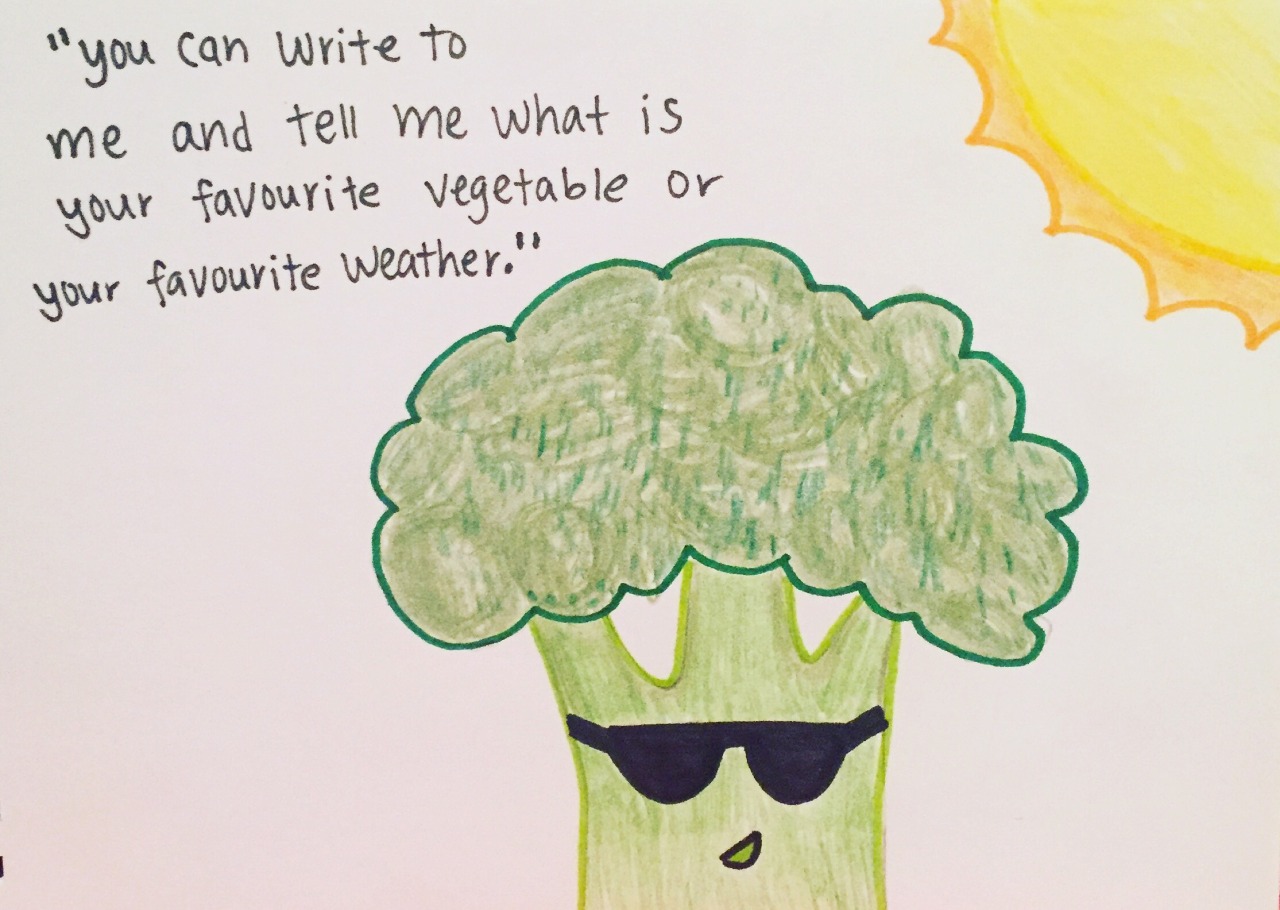 "you can write to
me and tell me what is
your favourite vegetable or
your favourite weather."